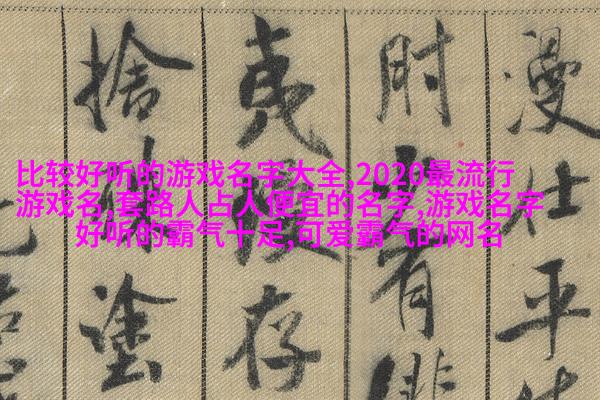 比较好听的游戏名字大全,2020最流行
游戏名,套路人占人便宜的名字,游戏名字
好听的霸气十足,可爱霸气的网名
漫仕平
时有
夷险存
捨塗